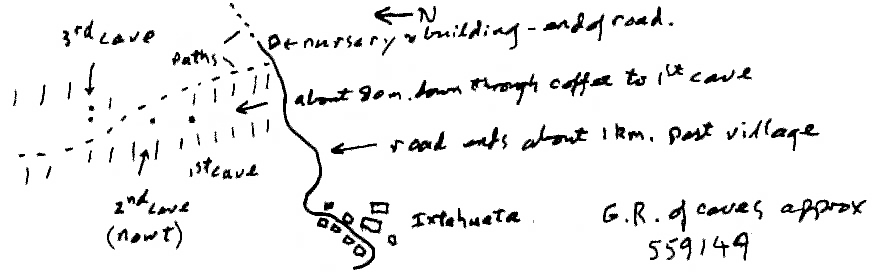 ← N
nursery & building - end of road.
3rd cave
Paths
about 80m. down through coffee to 1st cave
road ends about 1 km. past village
1st cave
2nd cave
(nowt)
Ixtahuata.
G.R. of caves approx
559149